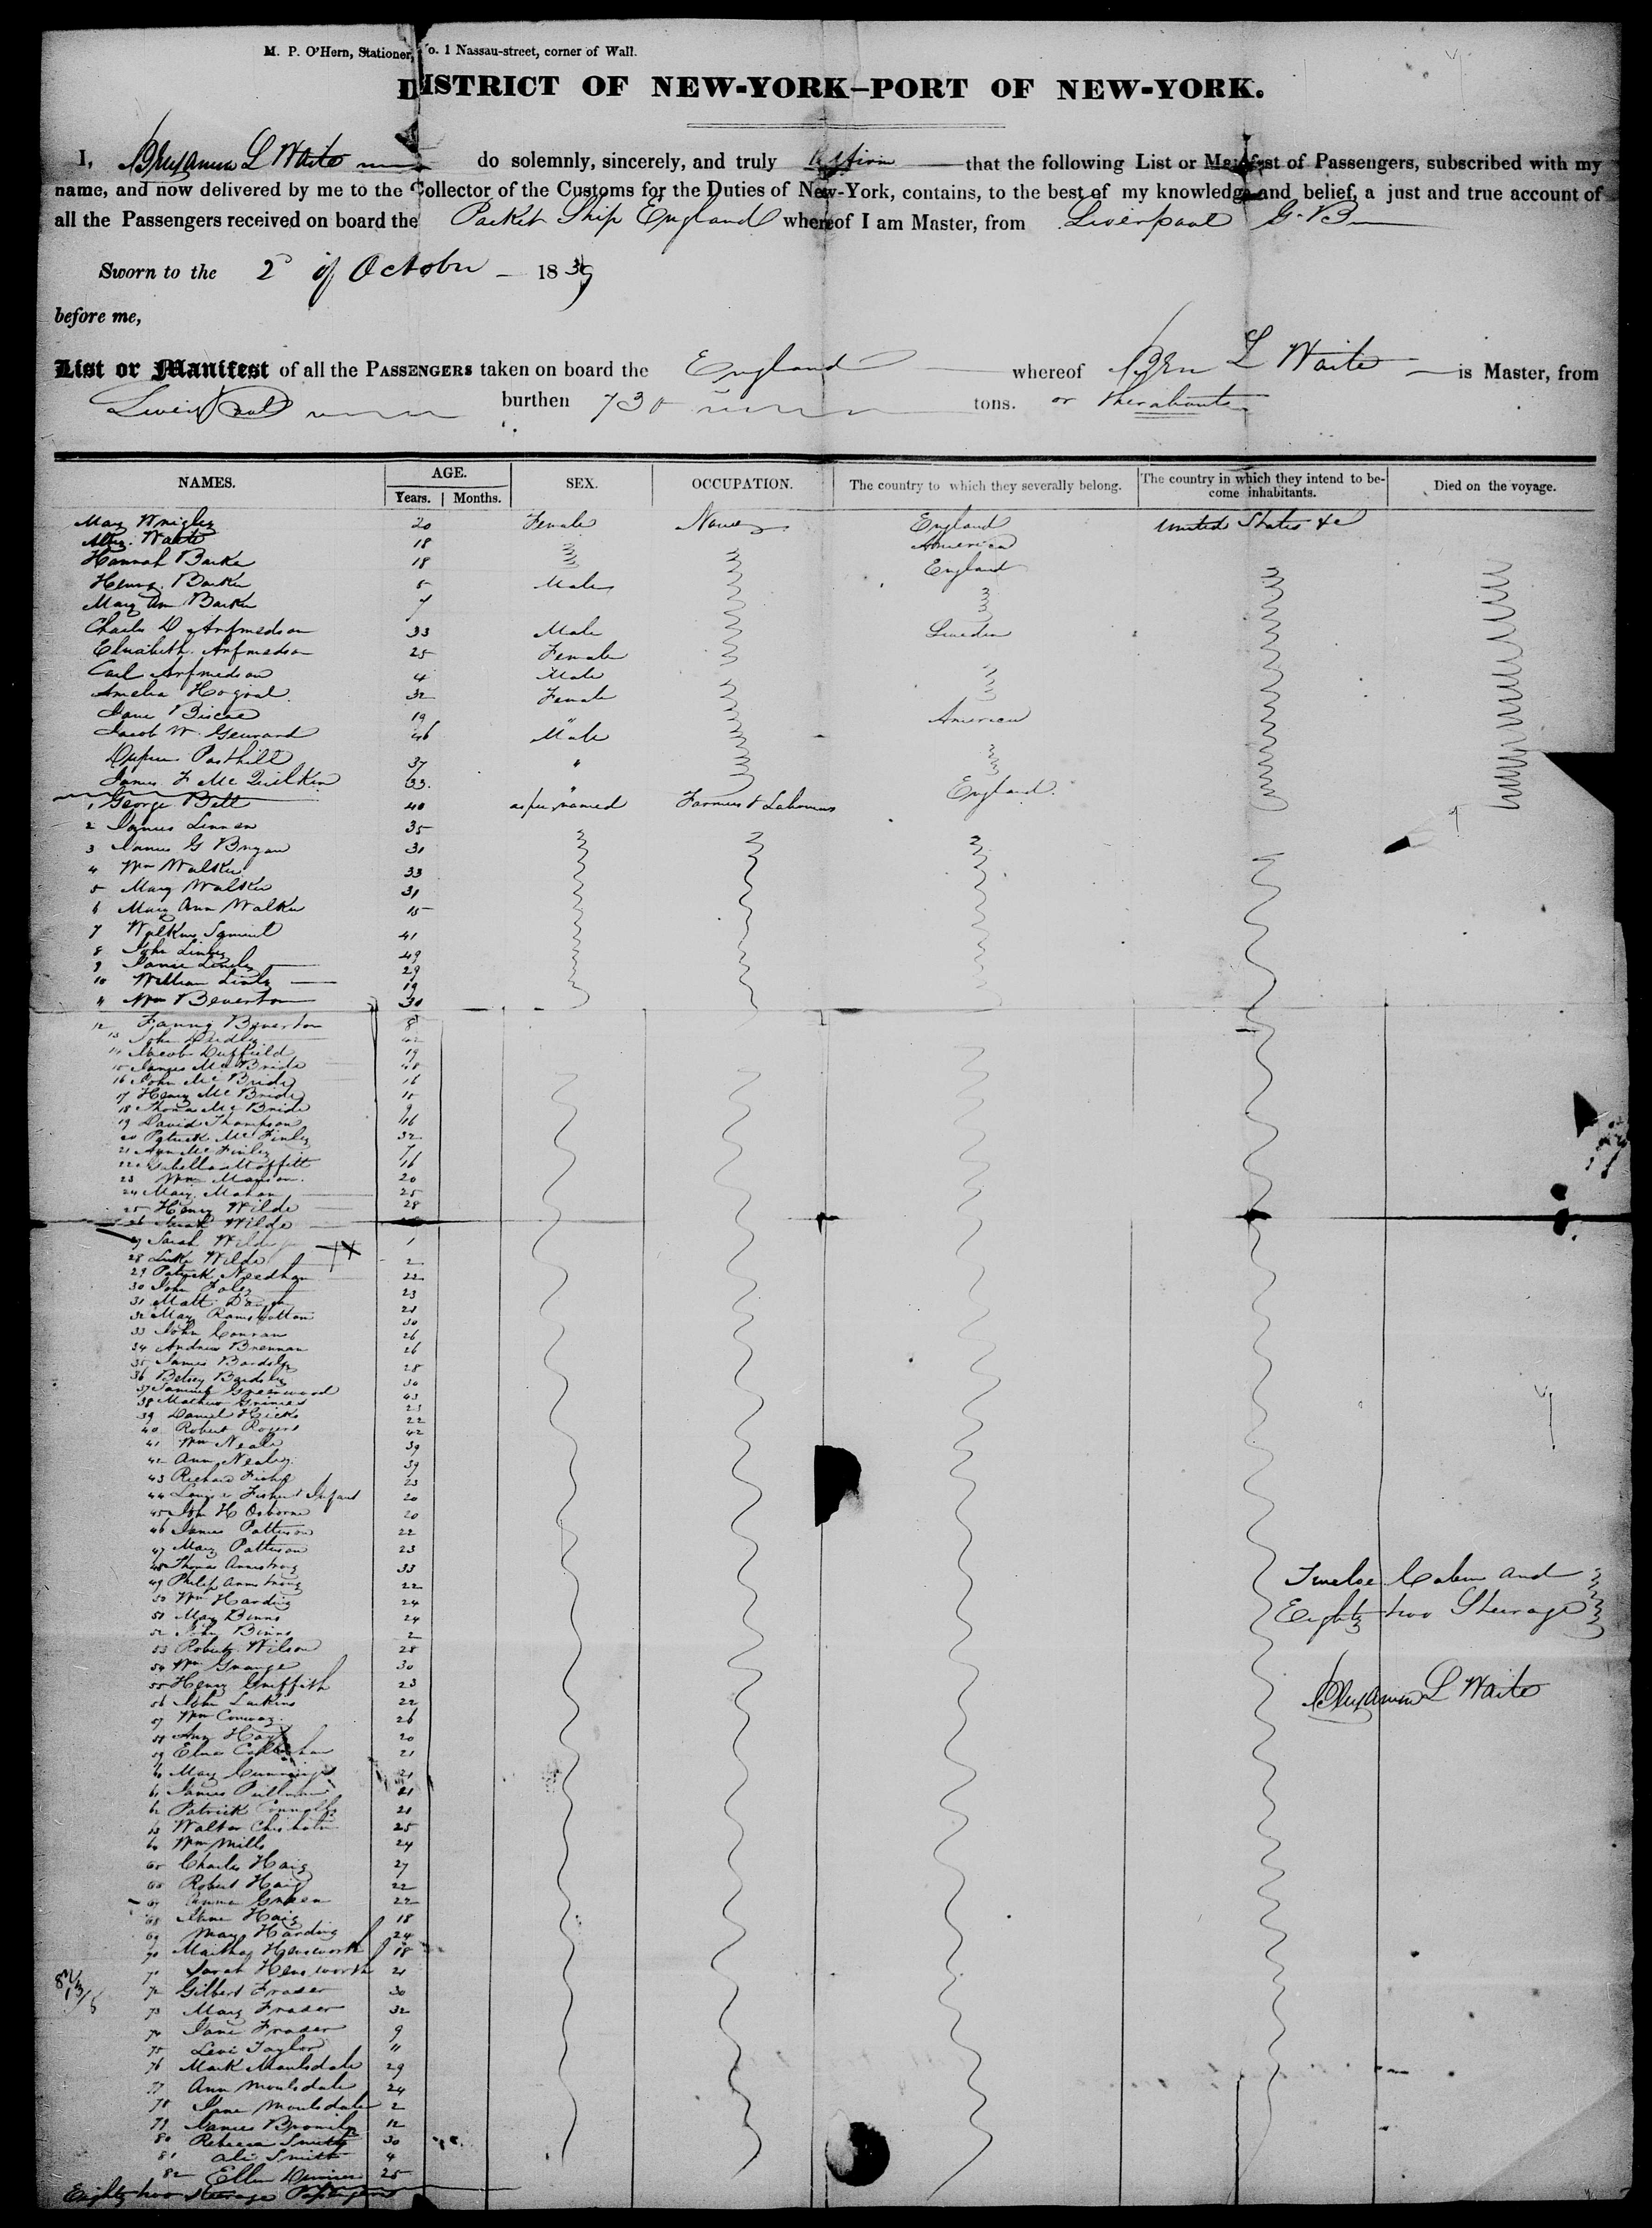 M. P. O'Hern, Stationer, No. 1 Nassau-street, corner of Wall.
DISTRICT OF NEW-YORK–PORT OF NEW-YORK.
I, Benjamin L Waite do solemnly, sincerely, and truly affirm that the following List or Manifest of Passengers, subscribed with my
name, and now delivered by me to the Collector of the Customs for the Duties of New-York, contains, to the best of my knowledge and belief, a just and true account of
all the Passengers received on board the Packet Ship England whereof I am Master, from Liverpool G. B
Sworn to the 2d of October 1839
before me,
List or Manifest of all the PASSENGERS taken on board the England whereof Ben L Waite is Master, from
Liverpool burthen 730 tons. or thereabouts
NAMES. AGE. SEX. OCCUPATION. The country to which they severally belong. The country in which they intend to be- Died on the voyage.
Years. Months. come inhabitants.
Mary Wrigley 20 Female None England United States &c
Waite 18 America
Hannah Barker 18 England
Henry Barker 5 Male
Mary Ann Barker 7
Charles D Arfwedson 33 Male Sweden
Elizabeth Arfwedson 25 Female
Carl Arfwedson 4 Male
Amelia 32 Female
Jane Biscoe 19 " America
Jacob W. 46 Male
Posthill 37 "
James F McQuilkin 33 " England
1 George Bell 40 as per named Farmers & Labourers
2 James Linnen 35
3 James G Bryan 31
4 Wm Walker 33
5 Mary Walker 31
6 Mary Ann Walker 15
7 41
8 John Linley 49
9 Linley 29
10 William Linly 19
11 Wm Beverton 30
12 Fanny Beverton 8
13 John 42
14 Jacob Duffield 19
15 James McBride 48
16 John McBride 16
17 Henry McBride 15
18 Thomas McBride 9
19 David Thompson 46
20 Patrick McFinley 32
21 Ann McFinley 7
22 Isabella Moffitt 16
23 Wm Manson 20
24 Mary Mahon 25
25 Henry Wilde 28
26 Sarah Wilde
27 Sarah Wilde 1
28 Luke Wilde 2
29 Patrick Needham 22
30 John Foley 23
31 Matt 21
32 Mary Ramsbottom 30
33 John Conran 26
34 Andrew Brennan 26
35 James Bardsly 28
36 Betsey Bardsly 30
37 Samuel Greenwood 43
38 Mathew Grimes 21
39 Daniel Hicks 22
40 Robert Rogers 42
41 Wm Neale 39
42 Ann Nealey 39
43 Richard Fisher 23
44 Louisa Fisher & Infant 20
45 John H Osborne 20
46 James Patterson 22
47 Mary Patterson 23
48 Thomas Armstrong 33
49 Philip Armstrong 22
50 Wm Harding 24
51 Mary Binns 24
52 John Binns 2
53 Robert Wilson 28
54 Wm Grange 30
55 Henry Griffith 23
56 John Larkins 22
57 Wm Conway 26
58 Ann 20
59 Callahan 21
60 Mary Cummings 21
61 James Pullman 21
62 Patrick Connolly 21
63 Walter Chisholm 25
64 Wm Mills 24
65 Charles Haig 27
66 Robert Haig 22
67 Green 22
68 Haig 18
69 Mary Harding 24
70 Martha Hensworth 18
71 Sarah Hensworth 21
72 Gilbert Fraser 30
73 Mary Fraser 32
74 Jane Fraser 9
75 Levi Taylor 11
76 Mark Moulsdale 29
77 Ann Moulsdale 24
78 Jane Moulsdale 2
79 James Bromily 12
80 Rebecca Smith 30
81 Smith 4
82 Ellen 25
Eighty two steerage Passengers
Twelve Cabin and
Eighty two Steerage
Benjamin L Waite